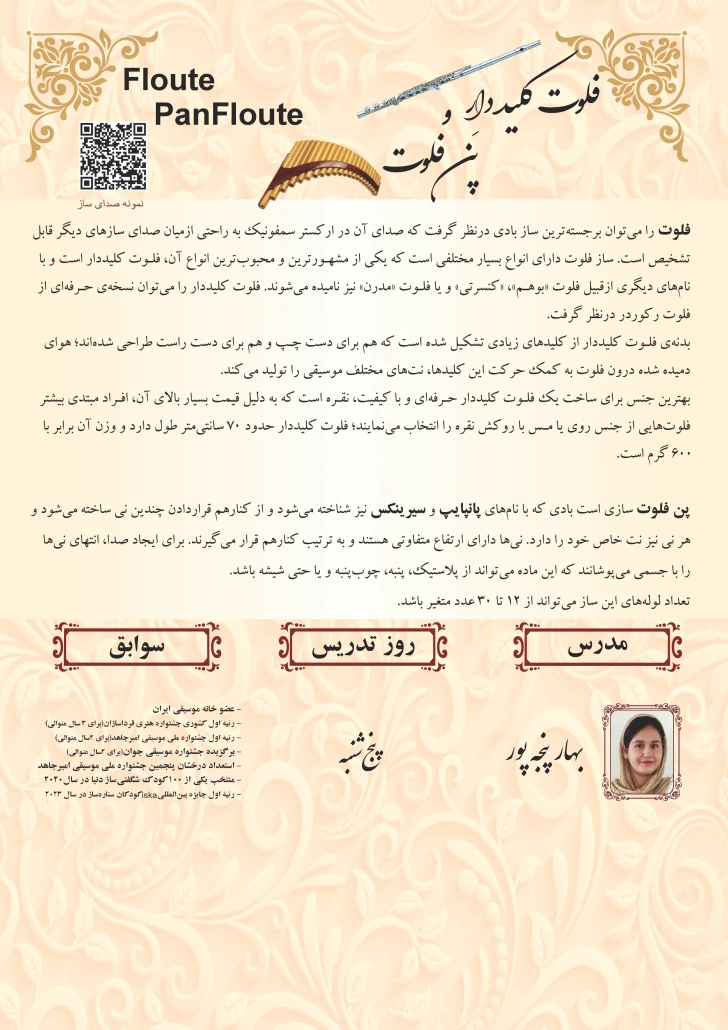 Floute
PanFloute
فلوت کلیددار
و
پَن فلوت
نمونه صدای ساز
فلوت را می‌توان برجسته‌ترین ساز بادی درنظر گرفت که صدای آن در ارکستر سمفونیک به راحتی ازمیان صدای سازهای دیگر قابل
تشخیص است. ساز فلوت دارای انواع بسیار مختلفی است که یکی از مشهورترین و محبوب‌ترین انواع آن، فلوت کلیددار است و با
نام‌های دیگری ازقبیل فلوت «بوهم»، «کنسرتی» و یا فلوت «مدرن» نیز نامیده می‌شوند. فلوت کلیددار را می‌توان نسخه‌ی حرفه‌ای از
فلوت رکوردر درنظر گرفت.
بدنه‌ی فلوت کلیددار از کلیدهای زیادی تشکیل شده است که هم برای دست چپ و هم برای دست راست طراحی شده‌اند؛ هوای
دمیده شده درون فلوت به کمک حرکت این کلیدها، نت‌های مختلف موسیقی را تولید می‌کند.
بهترین جنس برای ساخت یک فلوت کلیددار حرفه‌ای و با کیفیت، نقره است که به دلیل قیمت بسیار بالای آن، افراد مبتدی بیشتر
فلوت‌هایی از جنس روی یا مس با روکش نقره را انتخاب می‌نمایند؛ فلوت کلیددار حدود ۷۰ سانتی‌متر طول دارد و وزن آن برابر با
۶۰۰ گرم است.
پن فلوت سازی است بادی که با نام‌های پانپایپ و سیرینکس نیز شناخته می‌شود و از کنارهم قراردادن چندین نی ساخته می‌شود و
هر نی نیز نت خاص خود را دارد. نی‌ها دارای ارتفاع متفاوتی هستند و به ترتیب کنارهم قرار می‌گیرند. برای ایجاد صدا، انتهای نی‌ها
را با جسمی می‌پوشانند که این ماده می‌تواند از پلاستیک، پنبه، چوب‌پنبه و یا حتی شیشه باشد.
تعداد لوله‌های این ساز می‌تواند از ۱۲ تا ۳۰ عدد متغیر باشد.
مدرس
روز تدریس
سوابق
بهار پنجه پور
پنج‌شنبه
- عضو خانه موسیقی ایران
- رتبه اول کشوری جشنواره هنری فرداسازان(برای ۳سال متوالی)
- رتبه اول جشنواره ملی موسیقی امیرجاهد(برای ۳سال متوالی)
- برگزیده جشنواره موسیقی جوان(برای ۳سال متوالی)
- استعداد درخشان پنجمین جشنواره ملی موسیقی امیرجاهد
- منتخب یکی از ۱۰۰کودک شگفتی‌ساز دنیا در سال۲۰۲۰
- رتبه اول جایزه بین‌المللیiskaکودکان ستاره‌ساز در سال ۲۰۲۳